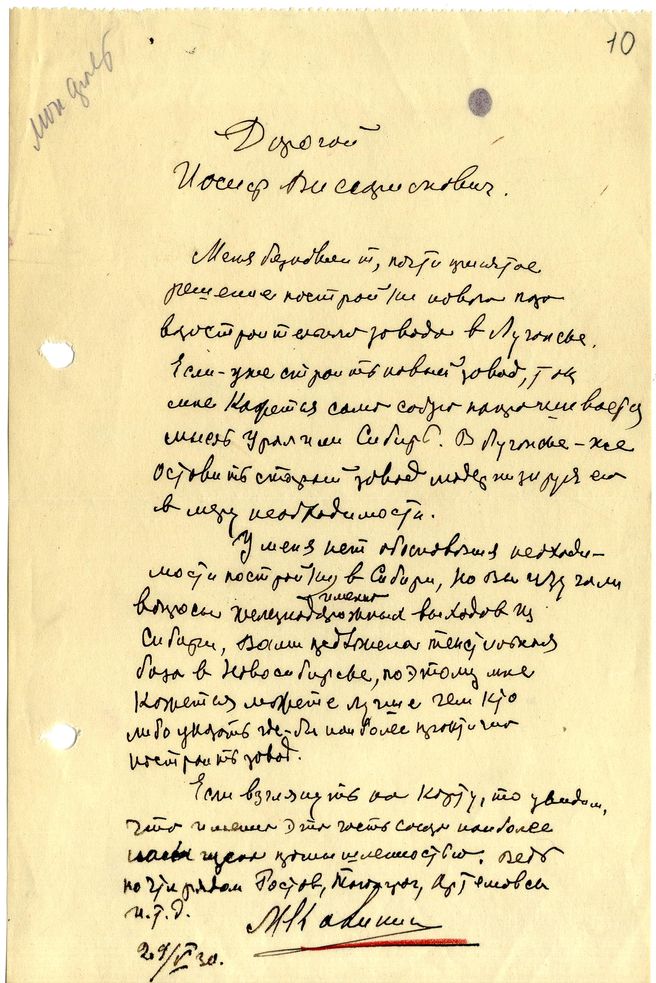 10
Мой архив
Дорогой
Иосиф Виссарионович.
Меня беспокоит, почти принятое
решение постройки нового паро
возостроительного завода в Луганске.
Если-уже строить новый завод, так
мне кажется само собою напрашивается
мысль Урал или Сибирь. В Луганске-же
оставить старый завод модернизируя его
в меру необходимости.
У меня нет обоснования необходи-
мости постройки в Сибири, но Вы изучали
именно
вопросы железнодорожных выходов из
Сибири, Вами предложена текстильная
база в Новосибирске, поэтому мне
кажется можете лучше чем кто
либо указать где-бы наиболее практично
построить завод.
Если взглянуть на карту, то увидим,
что именно эта часть союза наиболее
насыщена промышленностью. Ведь
почти рядом Ростов, Таганрог, Артемовск
и.т.д.
МКалинин
29/V 30.